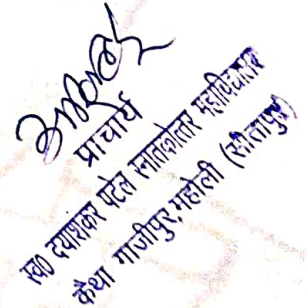 प्राचार्य
स्व० दयाशंकर पटेल स्नातकोत्तर महाविद्यालय
कैथा गाजीपुर,महोली (सीतापुर)